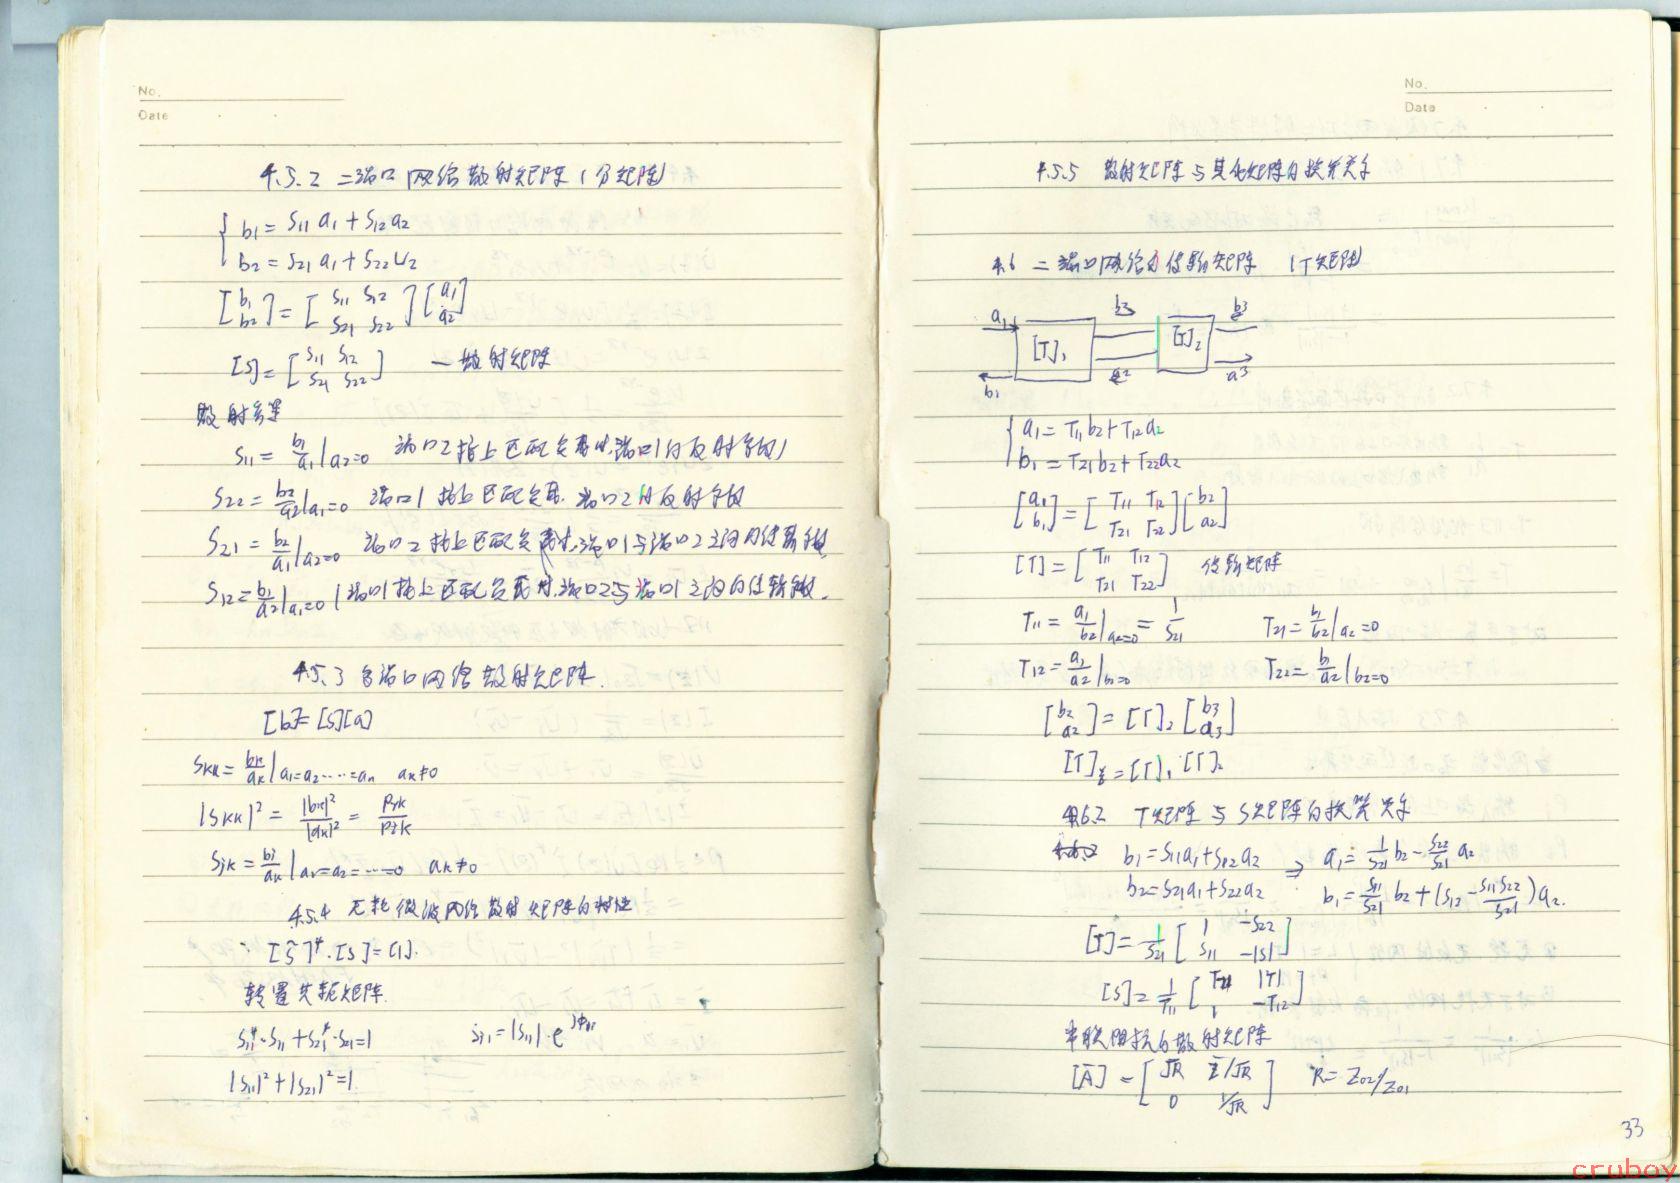 No.
Date
4.5.2 二端口网络散射矩阵(S矩阵)
b1 = S11 a1 + S12 a2
b2 = S21 a1 + S22 a2
[b1 b2] = [S11 S12 S21 S22] [a1 a2]
[S] = [S11 S12 S21 S22] — 散射矩阵
散射参量
S11 = b1/a1 | a2=0 端口2接上匹配负载时,端口1的反射系数
S22 = b2/a2 | a1=0 端口1接上匹配负载 端口2的反射系数
S21 = b2/a1 | a2=0 端口2接上匹配负载时,端口1与端口2之间的传输系数
S12 = b1/a2 | a1=0 端口1接上匹配负载时,端口2与端口1之间的传输系数.
4.5.3 多端口网络散射矩阵.
[b] = [S][a]
Skk = bk/ak | a1=a2……=an ak≠0
|Skk|² = |bk|²/|ak|² = Prk/Pik
Sjk = bj/ak | a1=a2=……=0 ak≠0
4.5.4 无耗微波网络散射矩阵的特性
[S̃]*·[S] = [1].
转置共轭矩阵.
S11*·S11 + S21*·S21 = 1 S11 = |S11|·e^jφ11
|S11|² + |S21|² = 1.
No.
Date
4.5.5 散射矩阵与其他矩阵的换算关系
4.6 二端口网络的传输矩阵 (T矩阵)
a1 [T]1 b2 [T]2 b3
b1 a2 a3
a1 = T11 b2 + T12 a2
b1 = T21 b2 + T22 a2
[a1 b1] = [T11 T12 T21 T22] [b2 a2]
[T] = [T11 T12 T21 T22] 传输矩阵
T11 = a1/b2 | a2=0 = 1/S21 T21 = b1/b2 | a2=0
T12 = a1/a2 | b2=0 T22 = b1/a2 | b2=0
[b2 a2] = [T]2 [b3 a3]
[T] = [T]1·[T]2
4.6.2 T矩阵与S矩阵的换算关系
b1 = S11 a1 + S12 a2 ⇒ a1 = 1/S21 b2 - S22/S21 a2
b2 = S21 a1 + S22 a2 b1 = S11/S21 b2 + (S12 - S11S22/S21) a2.
[T] = 1/S21 [1 -S22 S11 -|S|]
[S] = 1/T11 [T21 |T| 1 -T12]
串联阻抗的散射矩阵
[A] = [√R Z̄/√R 0 1/√R] R = Z02/Z01
33
cruboy